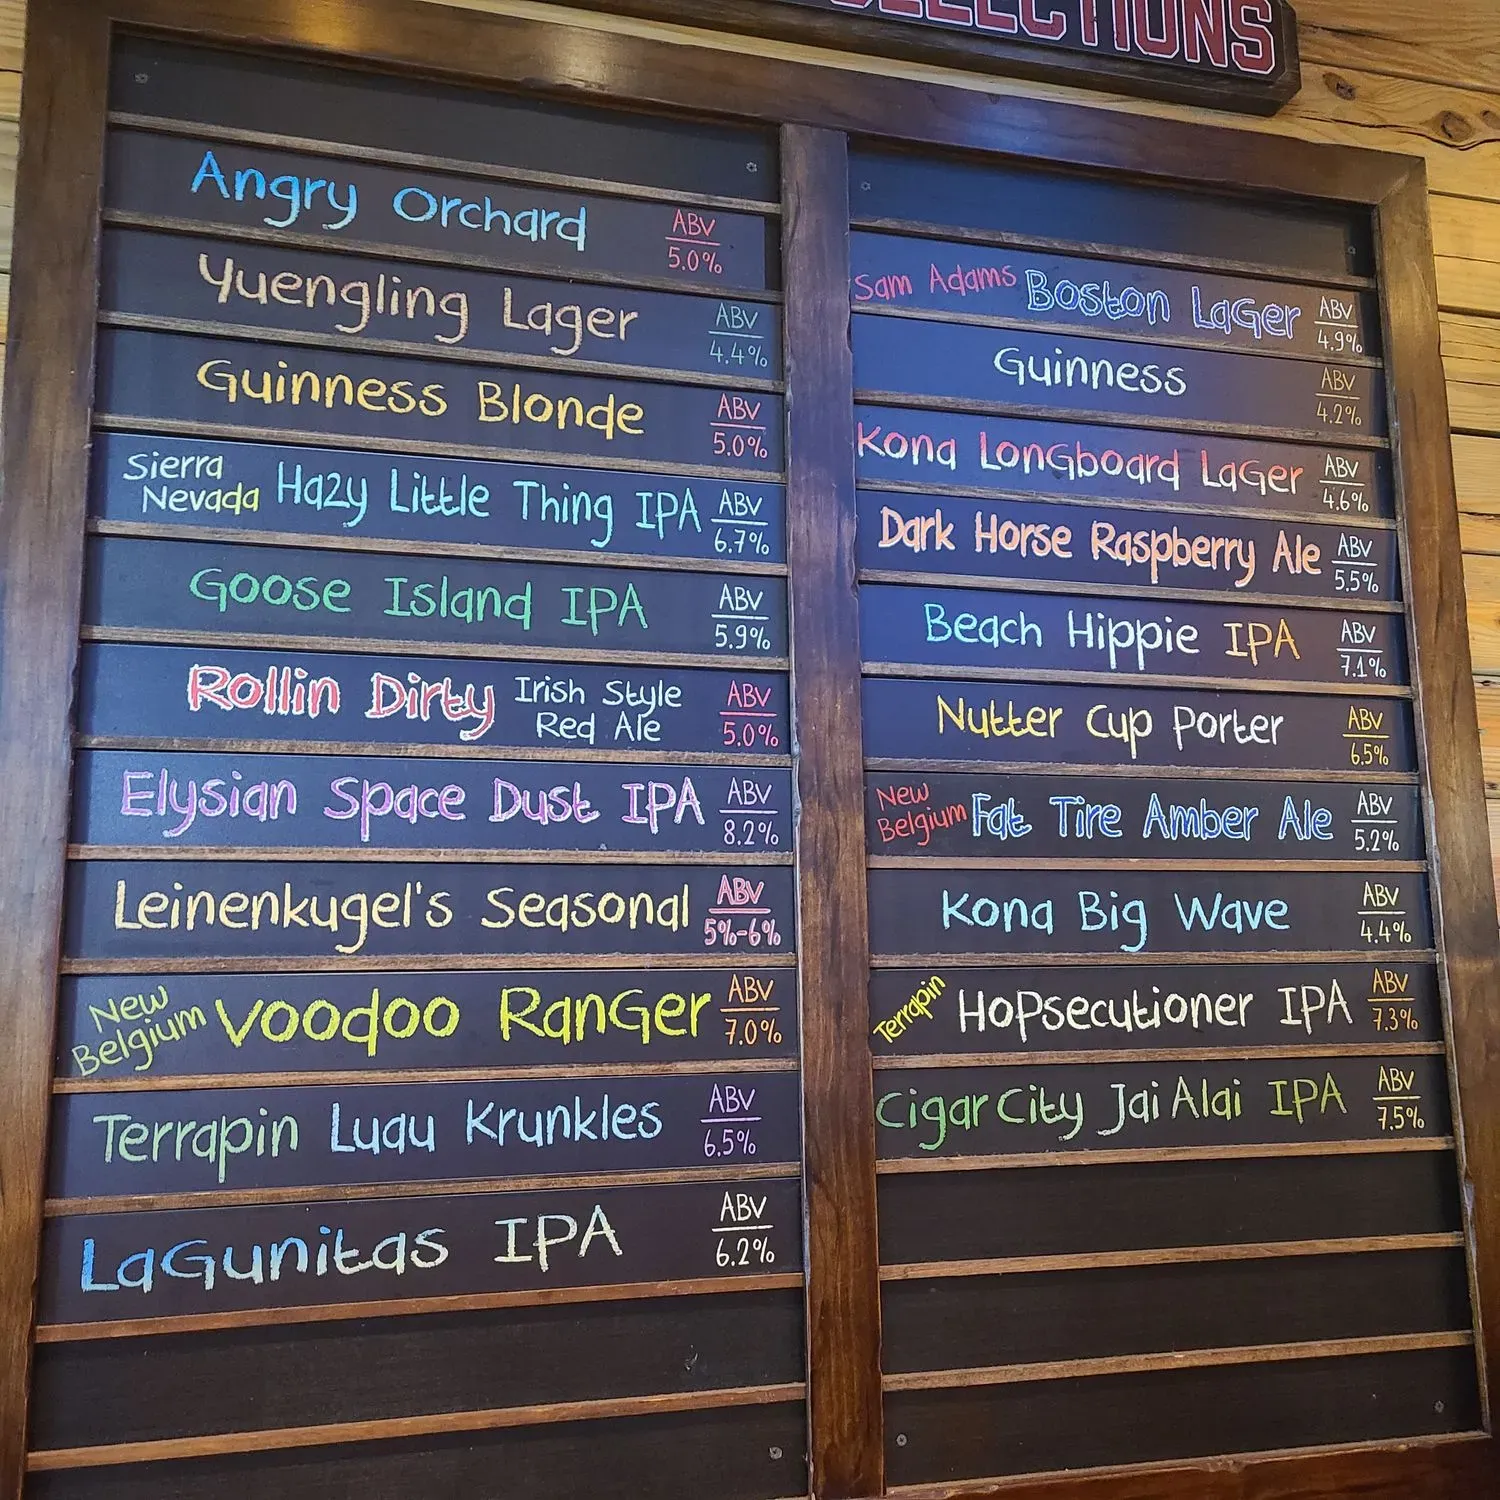 SELECTIONS
Angry Orchard ABV 5.0%
Yuengling Lager ABV 4.4%
Guinness Blonde ABV 5.0%
Sierra Nevada Hazy Little Thing IPA ABV 6.7%
Goose Island IPA ABV 5.9%
Rollin Dirty Irish Style Red Ale ABV 5.0%
Elysian Space Dust IPA ABV 8.2%
Leinenkugel's Seasonal ABV 5%-6%
New Belgium Voodoo Ranger ABV 7.0%
Terrapin Luau Krunkles ABV 6.5%
Lagunitas IPA ABV 6.2%
Sam Adams Boston Lager ABV 4.9%
Guinness ABV 4.2%
Kona Longboard Lager ABV 4.6%
Dark Horse Raspberry Ale ABV 5.5%
Beach Hippie IPA ABV 7.1%
Nutter Cup Porter ABV 6.5%
New Belgium Fat Tire Amber Ale ABV 5.2%
Kona Big Wave ABV 4.4%
Terrapin HoPsecutioner IPA ABV 7.3%
Cigar City Jai Alai IPA ABV 7.5%